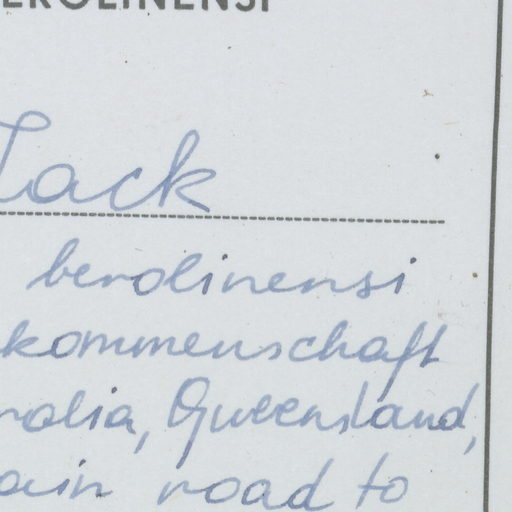 EROLINENSI
Jack
berolinensi
kommenschaft
ralia, Queensland,
ain road to